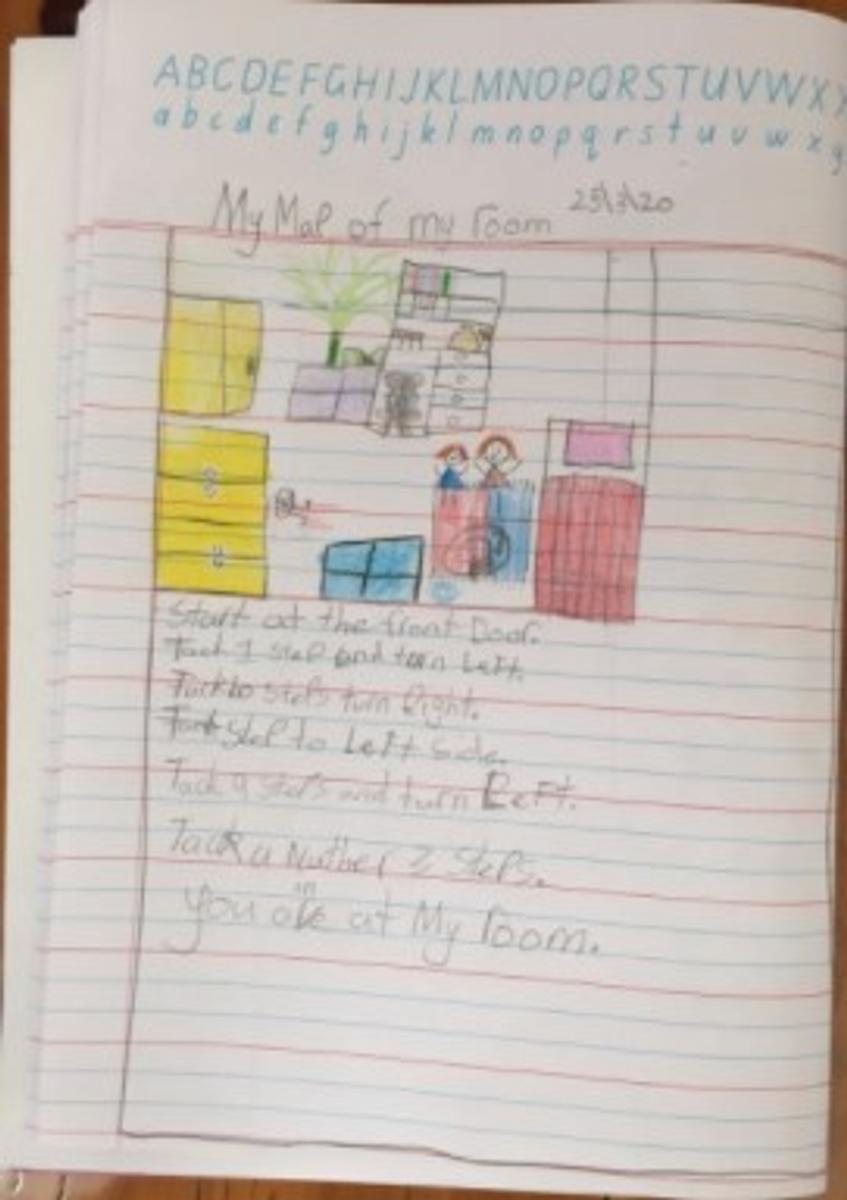 ABCDEFGHIJKLMNOPQRSTUVWX
abcdefghijklmnopqrstuvwxy
My Map of my room 25\3\20
Start at the front Door.
Tack 1 step and turn Left.
steps turn Right.
step to Left side.
Tack 9 steps and turn Left.
Tack a nuther 2 steps.
in
you are at My room.